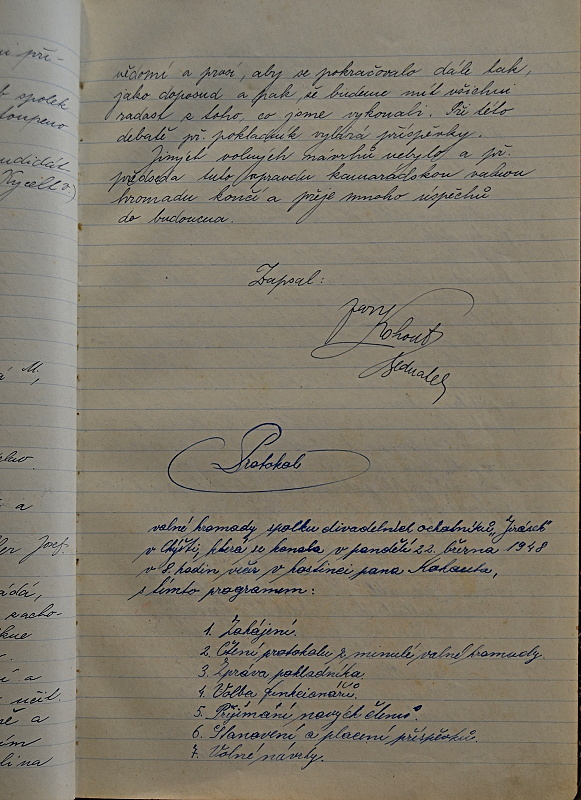 vědomí a prosí, aby se pokračovalo dále tak,
jako doposud a pak, že budeme mít všichni
radost z toho, co jsme vykonali. Při této
debatě př. pokladník vybírá příspěvky.
Jiných volných návrhů nebylo a př.
předseda tuto opravdu kamarádskou valnou
hromadu končí a přeje mnoho úspěchů
do budoucna.
Zapsal:
Kohout
jednatel
Protokol
valné hromady spolku divadelních ochotníků "Jirásek"
v která se konala v pondělí 22. března 1948
v 8. hodin večer v hostinci pana Kohouta,
s tímto programem:
1. Zahájení.
2. Čtení protokolu z minulé valné hromady.
3. Zpráva pokladníka.
4. Volba funkcionářů.
5. Přijímání nových členů.
6. Stanovení a placení příspěvků.
7. Volné návrhy.